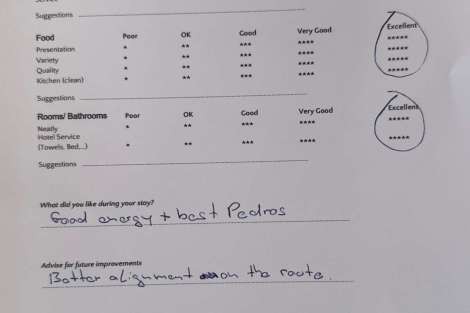 Suggestions
Food Poor OK Good Very Good Excellent
Presentation * ** *** **** *****
Variety * ** *** **** *****
Quality * ** *** **** *****
Kitchen (clean) * ** *** **** *****
Suggestions
Rooms/ Bathrooms Poor OK Good Very Good Excellent
Neatly * ** *** **** *****
Hotel Service
(Towels, Bed,...) * ** *** **** *****
Suggestions
What did you like during your stay?
Good energy + best Pedros
Advise for future improvements
Better alignment on the route.